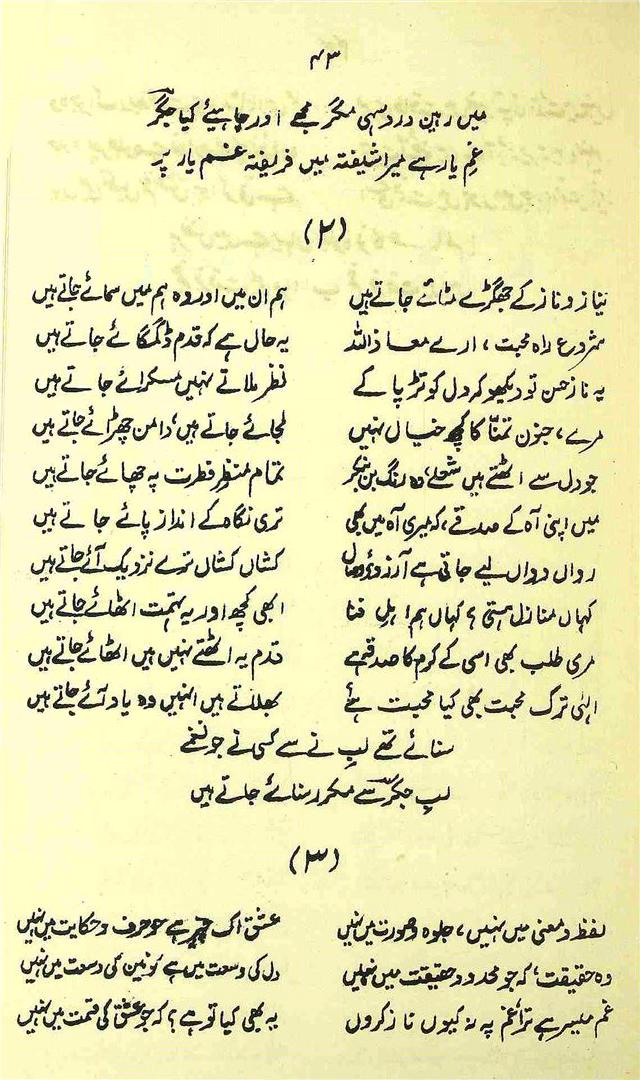 ۴۳
میں رہینِ درد سہی مگر مجھے اور چاہیئے کیا جگرؔ
غمِ یار ہے میرا شیفتہ میں فریفتہ غمِ یار پر
(۲)
نیاز و ناز کے جھگڑے مٹائے جاتے ہیں ہم ان میں اور وہ ہم میں سمائے جاتے ہیں
شروعِ راہِ محبت، ارے معاذ اللہ یہ حال ہے کہ قدم ڈگمگائے جاتے ہیں
یہ نازِ حسن تو دیکھو کہ دل کو تڑپا کے نظر ملاتے نہیں مسکرائے جاتے ہیں
مرے، جنونِ تمنّا کا کچھ خیال نہیں لجائے جاتے ہیں، دامن چھڑائے جاتے ہیں
جو دل سے اٹھتے ہیں شعلے، وہ رنگ بن بن کر تمام منظرِ فطرت پہ چھائے جاتے ہیں
میں اپنی آہ کے صدقے، کہ میری آہ میں بھی تری نگاہ کے انداز پائے جاتے ہیں
رواں دواں لیے جاتی ہے آرزوئے وصال کشاں کشاں ترے نزدیک آئے جاتے ہیں
کہاں منازلِ ہستی؟ کہاں ہم اہلِ فنا ابھی کچھ اور یہ تہمت اٹھائے جاتے ہیں
مری طلب بھی اسی کے کرم کا صدقہ ہے قدم یہ اٹھتے نہیں ہیں اٹھائے جاتے ہیں
الٰہی ترکِ محبت بھی کیا محبت ہے بھلاتے ہیں انہیں وہ یاد آئے جاتے ہیں
سنائے تھے لبِ نے سے کسی نے جو نغمے
لبِ جگرؔ سے مکرر سنائے جاتے ہیں
(۳)
لفظ و معنی میں نہیں، جلوہ و صورت میں نہیں عشق اک چیز ہے جو حرف و حکایت میں نہیں
وہ حقیقت، کہ جو محدود حقیقت میں نہیں دل کی وسعت میں ہے کونین کی وسعت میں نہیں
غم میسر ہے ترا غم پہ نہ کیوں ناز کروں یہ بھی کیا تو ہے؟ کہ جو عشق کی قسمت میں نہیں